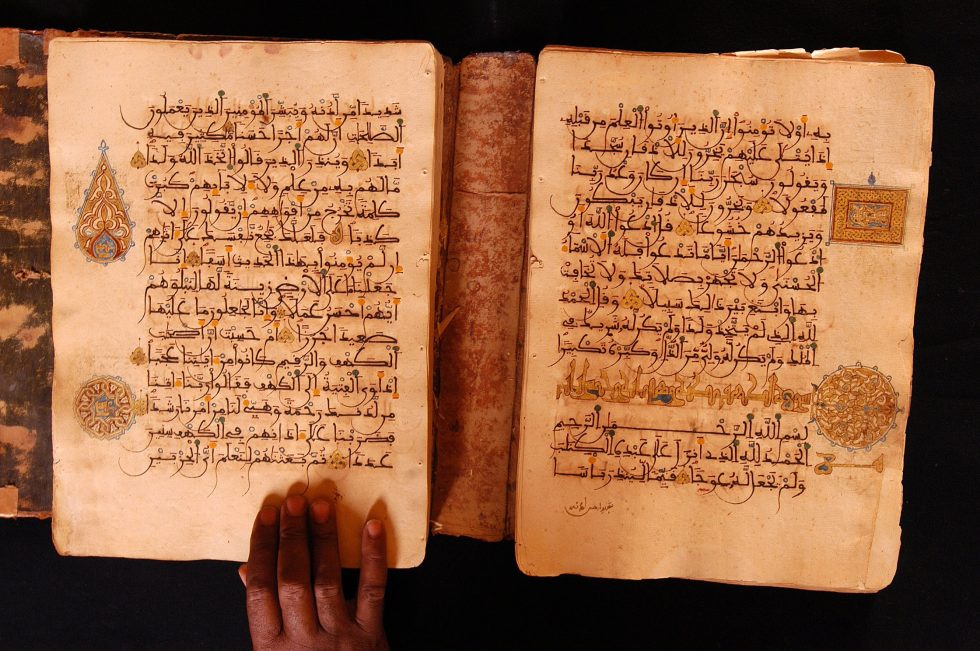 به أو لا تومنوا إن الذين أوتوا العلم من قبله
إذا يتلى عليهم يخرون للأذقان سجدا
ويقولون سبحن ربنا إن كان وعد ربنا
لمفعولا ويخرون للأذقان يبكون
ويزيدهم خشوعا قل ادعوا الله أو
ادعوا الرحمن أيا ما تدعوا فله الأسماء
الحسنى ولا تجهر بصلاتك ولا تخافت
بها وابتغ بين ذلك سبيلا وقل الحمد
لله الذي لم يتخذ ولدا ولم يكن له شريك في
الملك ولم يكن له ولي من الذل وكبره تكبيرا
بسم الله الرحمن الرحيم
الحمد لله الذي أنزل على عبده الكتب
ولم يجعل له عوجا قيما لينذر بأسا
شديدا من لدنه ويبشر المومنين الذين يعملون
الصلحت أن لهم أجرا حسنا مكثين فيه
أبدا وينذر الذين قالوا اتخذ الله ولدا
ما لهم به من علم ولا لابايهم كبرت
كلمة تخرج من أفوههم إن يقولون إلا
كذبا فلعلك بخع نفسك على اثرهم
إن لم يومنوا بهذا الحديث أسفا إنا
جعلنا ما على الأرض زينة لها لنبلوهم
أيهم أحسن عملا وإنا لجعلون ما عليها
صعيدا جرزا أم حسبت أن أصحب
الكهف والرقيم كانوا من ايتنا عجبا
إذ أوى الفتية إلى الكهف فقالوا ربنا اتنا
من لدنك رحمة وهيئ لنا من أمرنا رشدا
فضربنا على اذانهم في الكهف سنين
عددا ثم بعثنهم لنعلم أي الحزبين